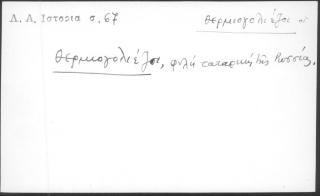 Λ. Λ. Ιστορια σ. 67
θερμιογολιέζοι οἱ
θερμιογολιέζοι, φυλὴ ταταρικὴ τῆς Ρωσσίας.